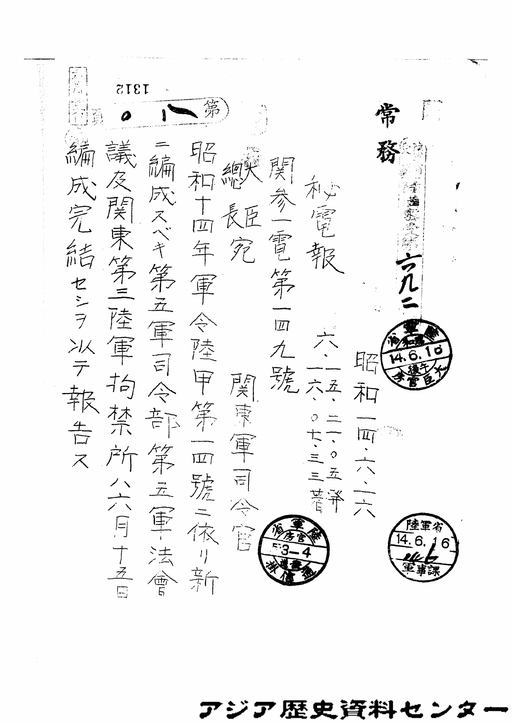 常務
六九二
昭和一四・六・一六
秘電報
六・一五・二一・〇五發
一六・〇七・三三著
関参一電第一四九號
大臣
總長宛
関東軍司令官
昭和十四年軍令陸甲第一四號ニ依リ新
ニ編成スベキ第五軍司令部第五軍法會
議及関東第三陸軍拘禁所ハ六月十五日
編成完結セシヲ以テ報告ス
第
1312
14.6.16
陸軍省
14.6.16
軍事課
3-4
アジア歴史資料センター